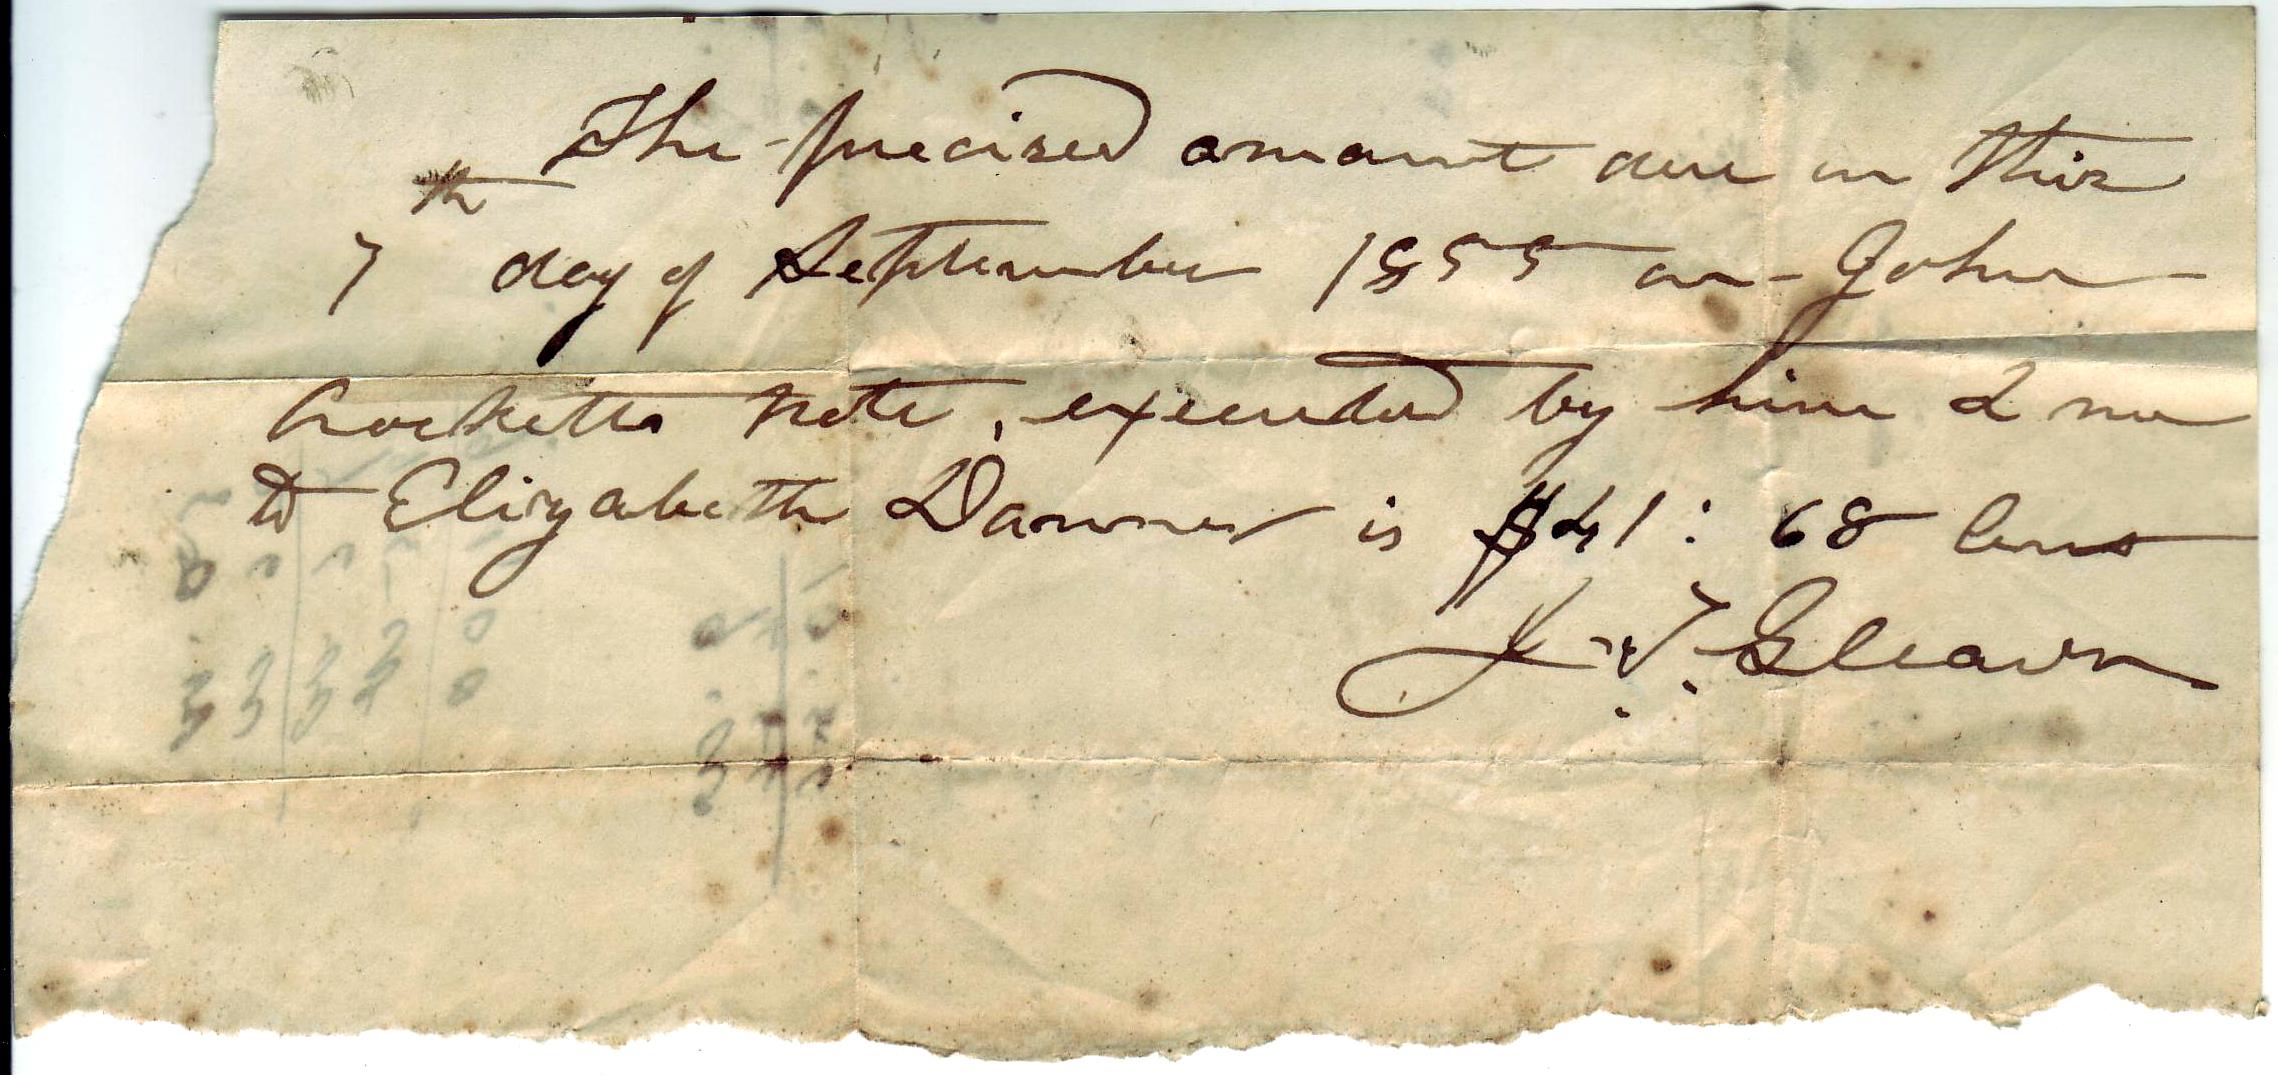 The precised amount due on this
7th day of September 1855 on John
Crocketts note, executed by him & me
to Elizabeth Danner is $41: 68 Cents
J. W. Gleavn